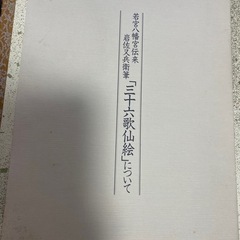 若宮八幡宮伝来
岩佐又兵衛筆
「三十六歌仙絵」について